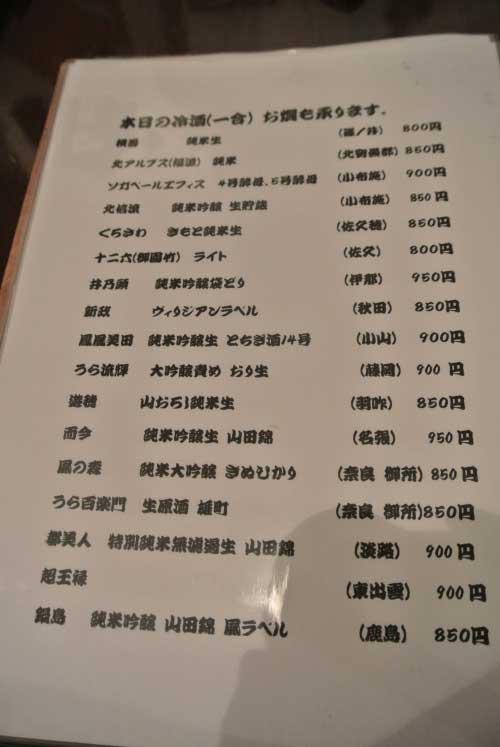 本日の冷酒(一合) お燗も承ります。
純米生 (篠ノ井) 800円
北アルプス(福源) 純米 (北安曇郡) 850円
ソガペールエフィス 4号酵母、5号酵母 (小布施) 900円
北信流 純米吟醸 生貯蔵 (小布施) 850円
くろさわ きもと純米生 (佐久穂) 850円
十二六(御園竹) ライト (佐久) 800円
井乃頭 純米吟醸袋どり (伊那) 950円
新政 ヴィリジアンラベル (秋田) 850円
鳳凰美田 純米吟醸生 とちぎ酒14号 (小山) 900円
うら流輝 大吟醸責め おり生 (藤岡) 900円
遊穂 山おろし純米生 (羽咋) 850円
而今 純米吟醸生 山田錦 (名張) 950円
風の森 純米大吟醸 きぬひかり (奈良 御所) 850円
うら百楽門 生原酒 雄町 (奈良 御所) 850円
都美人 特別純米無濾過生 山田錦 (淡路) 900円
旭王禄 (東出雲) 900円
鍋島 純米吟醸 山田錦 風ラベル (鹿島) 850円